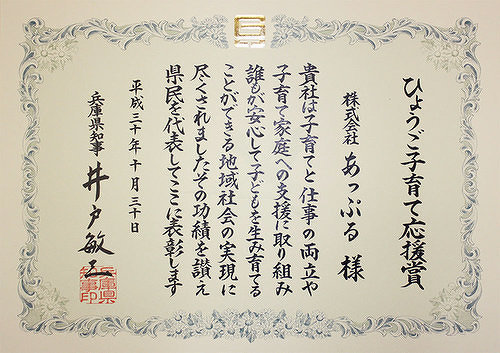 ひょうご子育て応援賞
株式会社 あっぷる 様
貴社は子育てと仕事の両立や
子育て家庭への支援に取り組み
誰もが安心して子どもを生み育てる
ことができる地域社会の実現に
尽くされましたその功績を讃え
県民を代表してここに表彰します
平成三十年十月三十日
兵庫県知事 井戸敏三
兵庫県
知事印